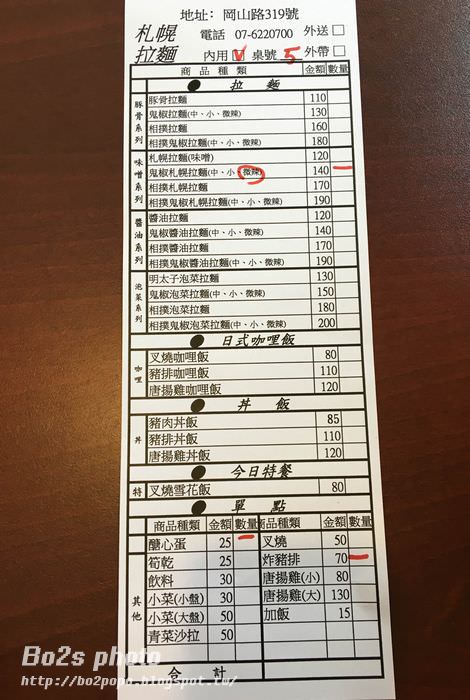 地址: 岡山路319號
札幌 電話 07-6220700 外送□
拉麵 內用☑ 桌號 5 外帶□
商品種類 金額 數量
● 拉麵
豚骨系列
豚骨拉麵 110
鬼椒拉麵(中、小、微辣) 130
相撲拉麵 160
相撲鬼椒拉麵(中、小、微辣) 180
味噌系列
札幌拉麵(味噌) 120
鬼椒札幌拉麵(中、小、微辣) 140 一
相撲札幌拉麵 170
相撲鬼椒札幌拉麵(中、小、微辣) 190
醬油系列
醬油拉麵 120
鬼椒醬油拉麵(中、小、微辣) 140
相撲醬油拉麵 170
相撲鬼椒醬油拉麵(中、小、微辣) 190
泡菜系列
明太子泡菜拉麵 130
鬼椒泡菜拉麵(中、小、微辣) 150
相撲泡菜拉麵 180
相撲鬼椒泡菜拉麵(中、小、微辣) 200
● 日式咖哩飯
咖哩
叉燒咖哩飯 80
豬排咖哩飯 110
唐揚雞咖哩飯 120
● 丼飯
丼
豬肉丼飯 85
豬排丼飯 110
唐揚雞丼飯 120
● 今日特餐
特 叉燒雪花飯 80
● 單點
商品種類 金額 數量 商品種類 金額 數量
其他
醣心蛋 25 一 叉燒 50
筍乾 25 炸豬排 70 一
飲料 30 唐揚雞(小) 80
小菜(小盤) 30 唐揚雞(大) 130
小菜(大盤) 50 加飯 15
青菜沙拉 50
合計
Bo2s photo
http://bo2popo.blogspot.tw/